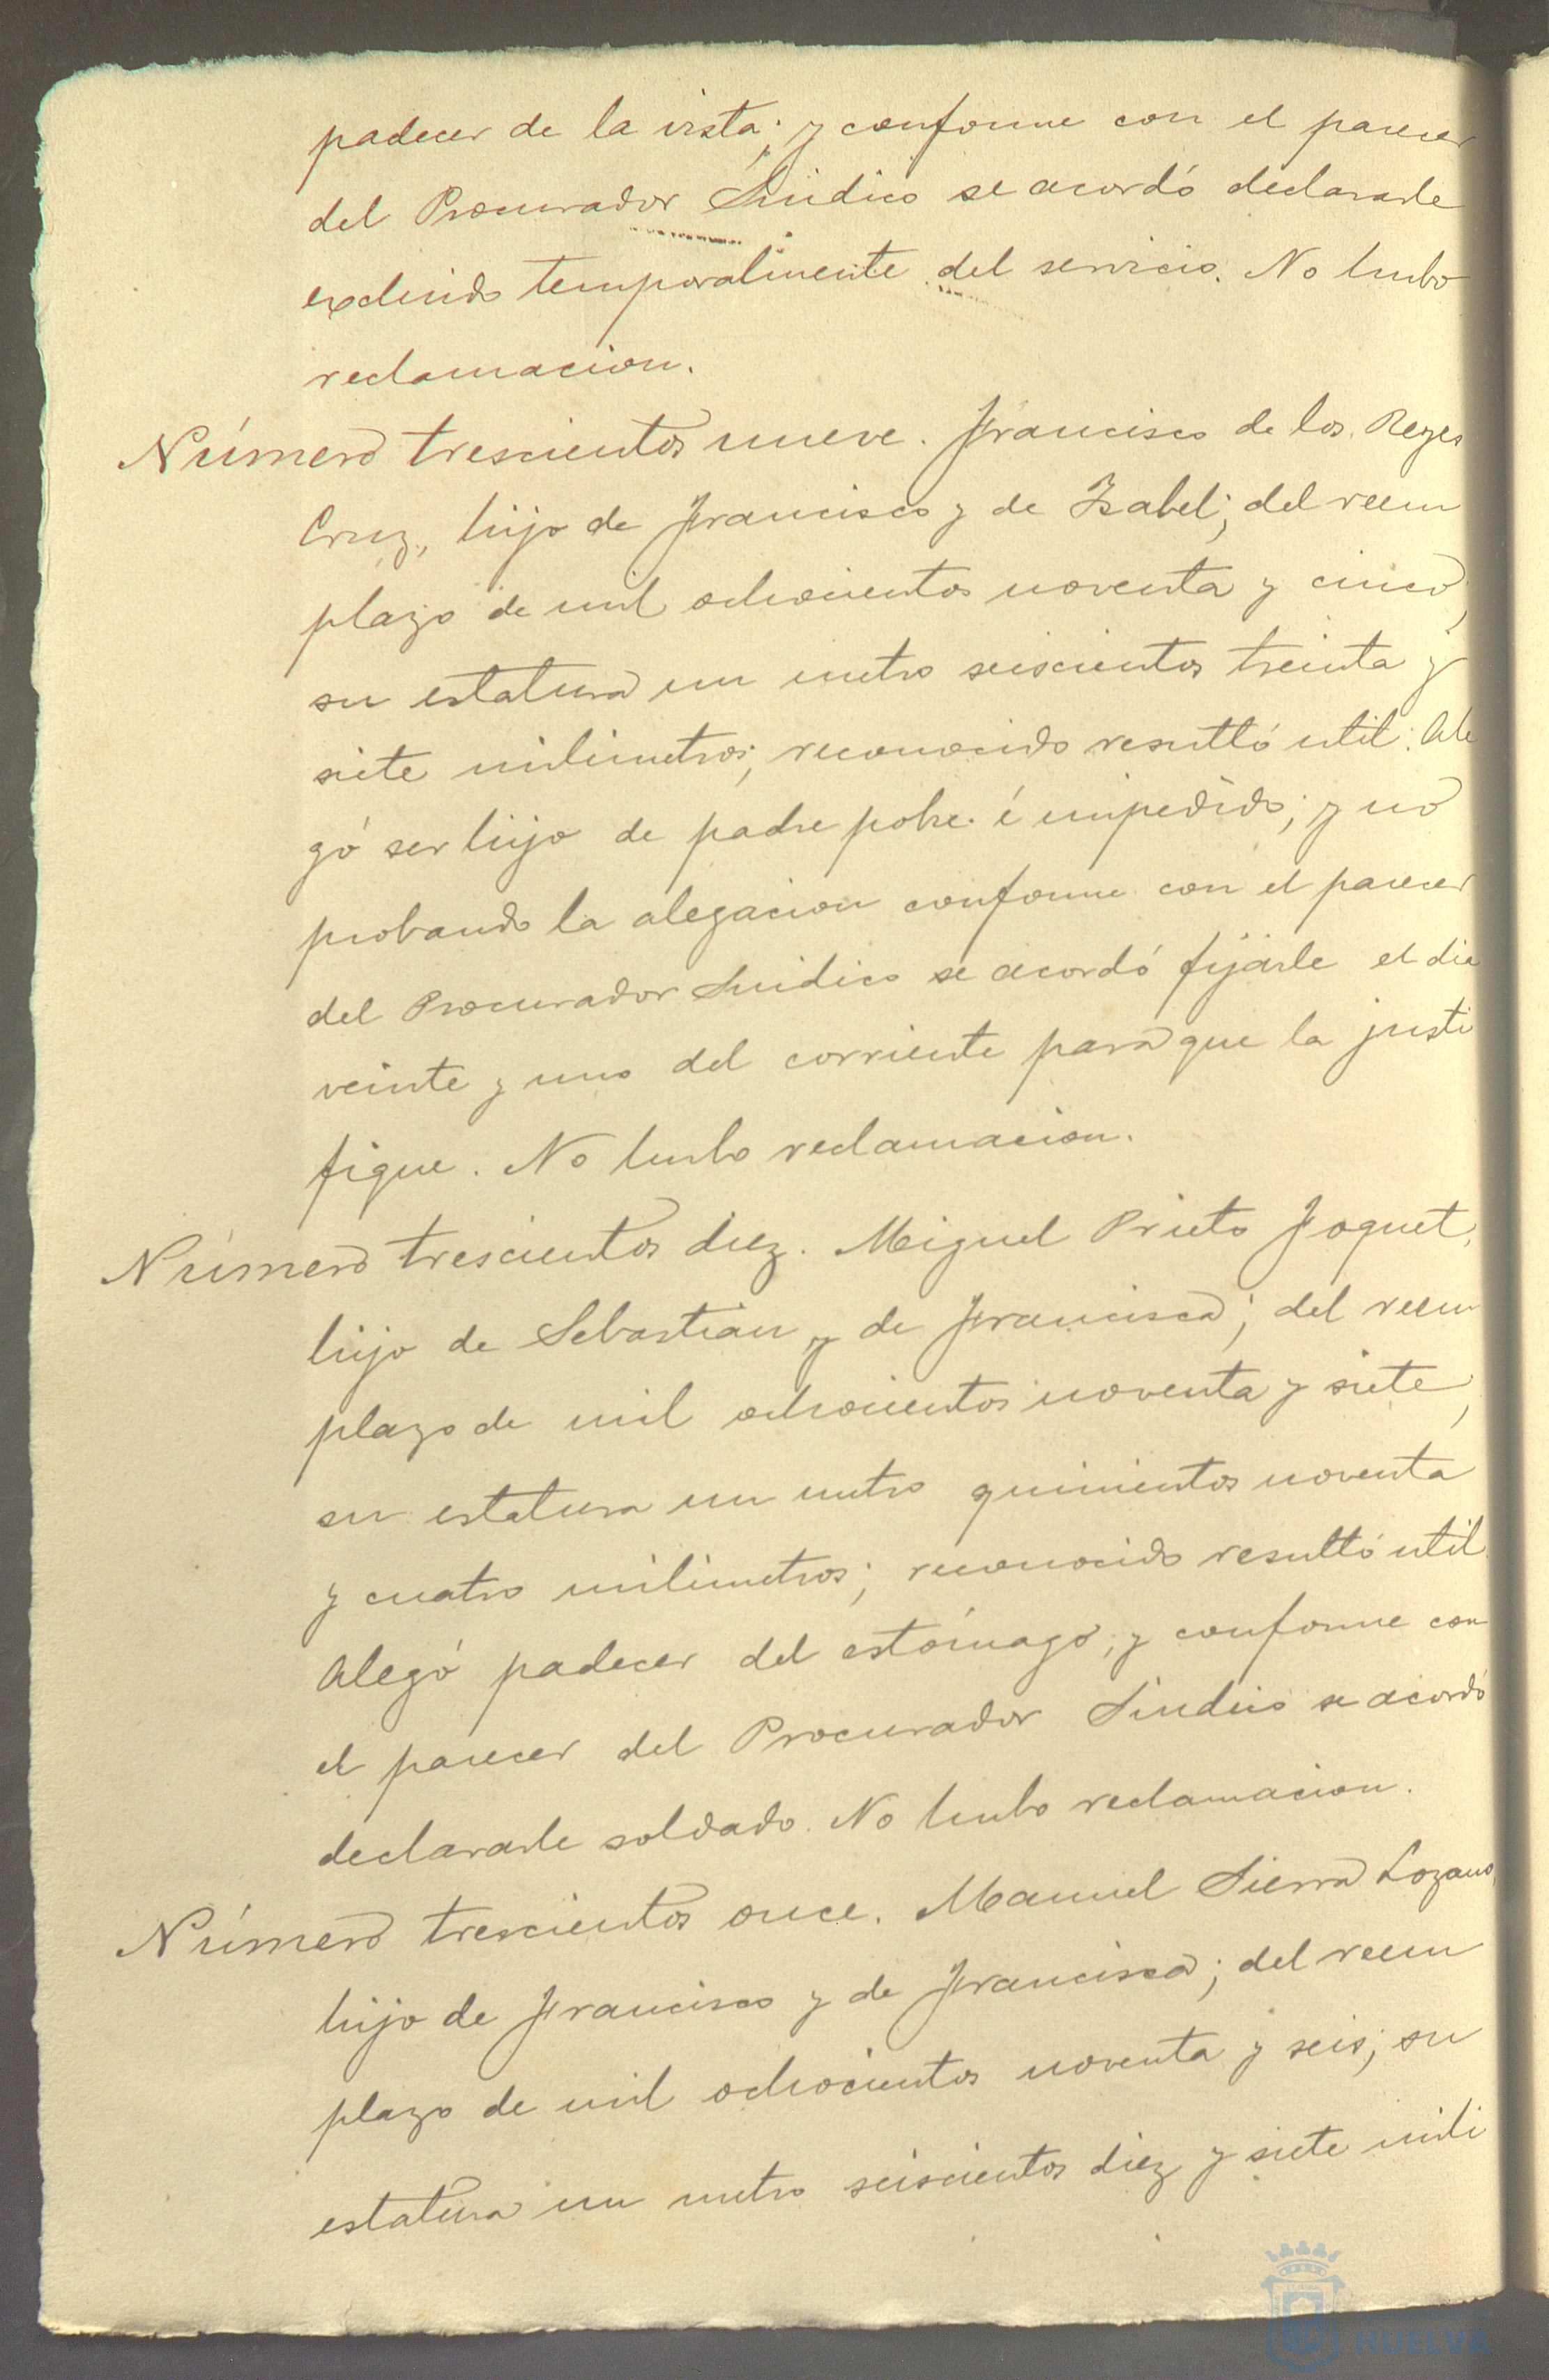 padecer de la vista; y conforme con el parecer
del Procurador Síndico se acordó declararle
excluido temporalmente del servicio. No hubo
reclamacion.
Número trescientos nueve. Francisco de los Reyes
Cruz, hijo de Francisco y de Isabel; del reem
plazo de mil ochocientos noventa y cinco,
su estatura un metro seiscientos treinta y
siete milimetros; reconocido resultó util. Ale
gó ser hijo de padre pobre é impedido; y no
probando la alegacion conforme con el parecer
del Procurador Sindico se acordó fijarle el dia
veinte y uno del corriente para que la justi
fique. No hubo reclamacion.
Número trescientos diez. Miguel Prieto Foquet,
hijo de Sebastian y de Francisca; del reem
plazo de mil ochocientos noventa y siete,
su estatura un metro quinientos noventa
y cuatro milimetros; reconocido resultó util.
Alegó padecer del estómago; y conforme con
el parecer del Procurador Sindico se acordó
declararle soldado. No hubo reclamacion.
Número trescientos once. Manuel Sierra Lozano,
hijo de Francisco y de Francisca; del reem
plazo de mil ochocientos noventa y seis; su
estatura un metro seiscientos diez y siete mili
HUELVA